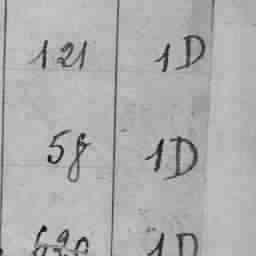 121 1D
58 1D
1D